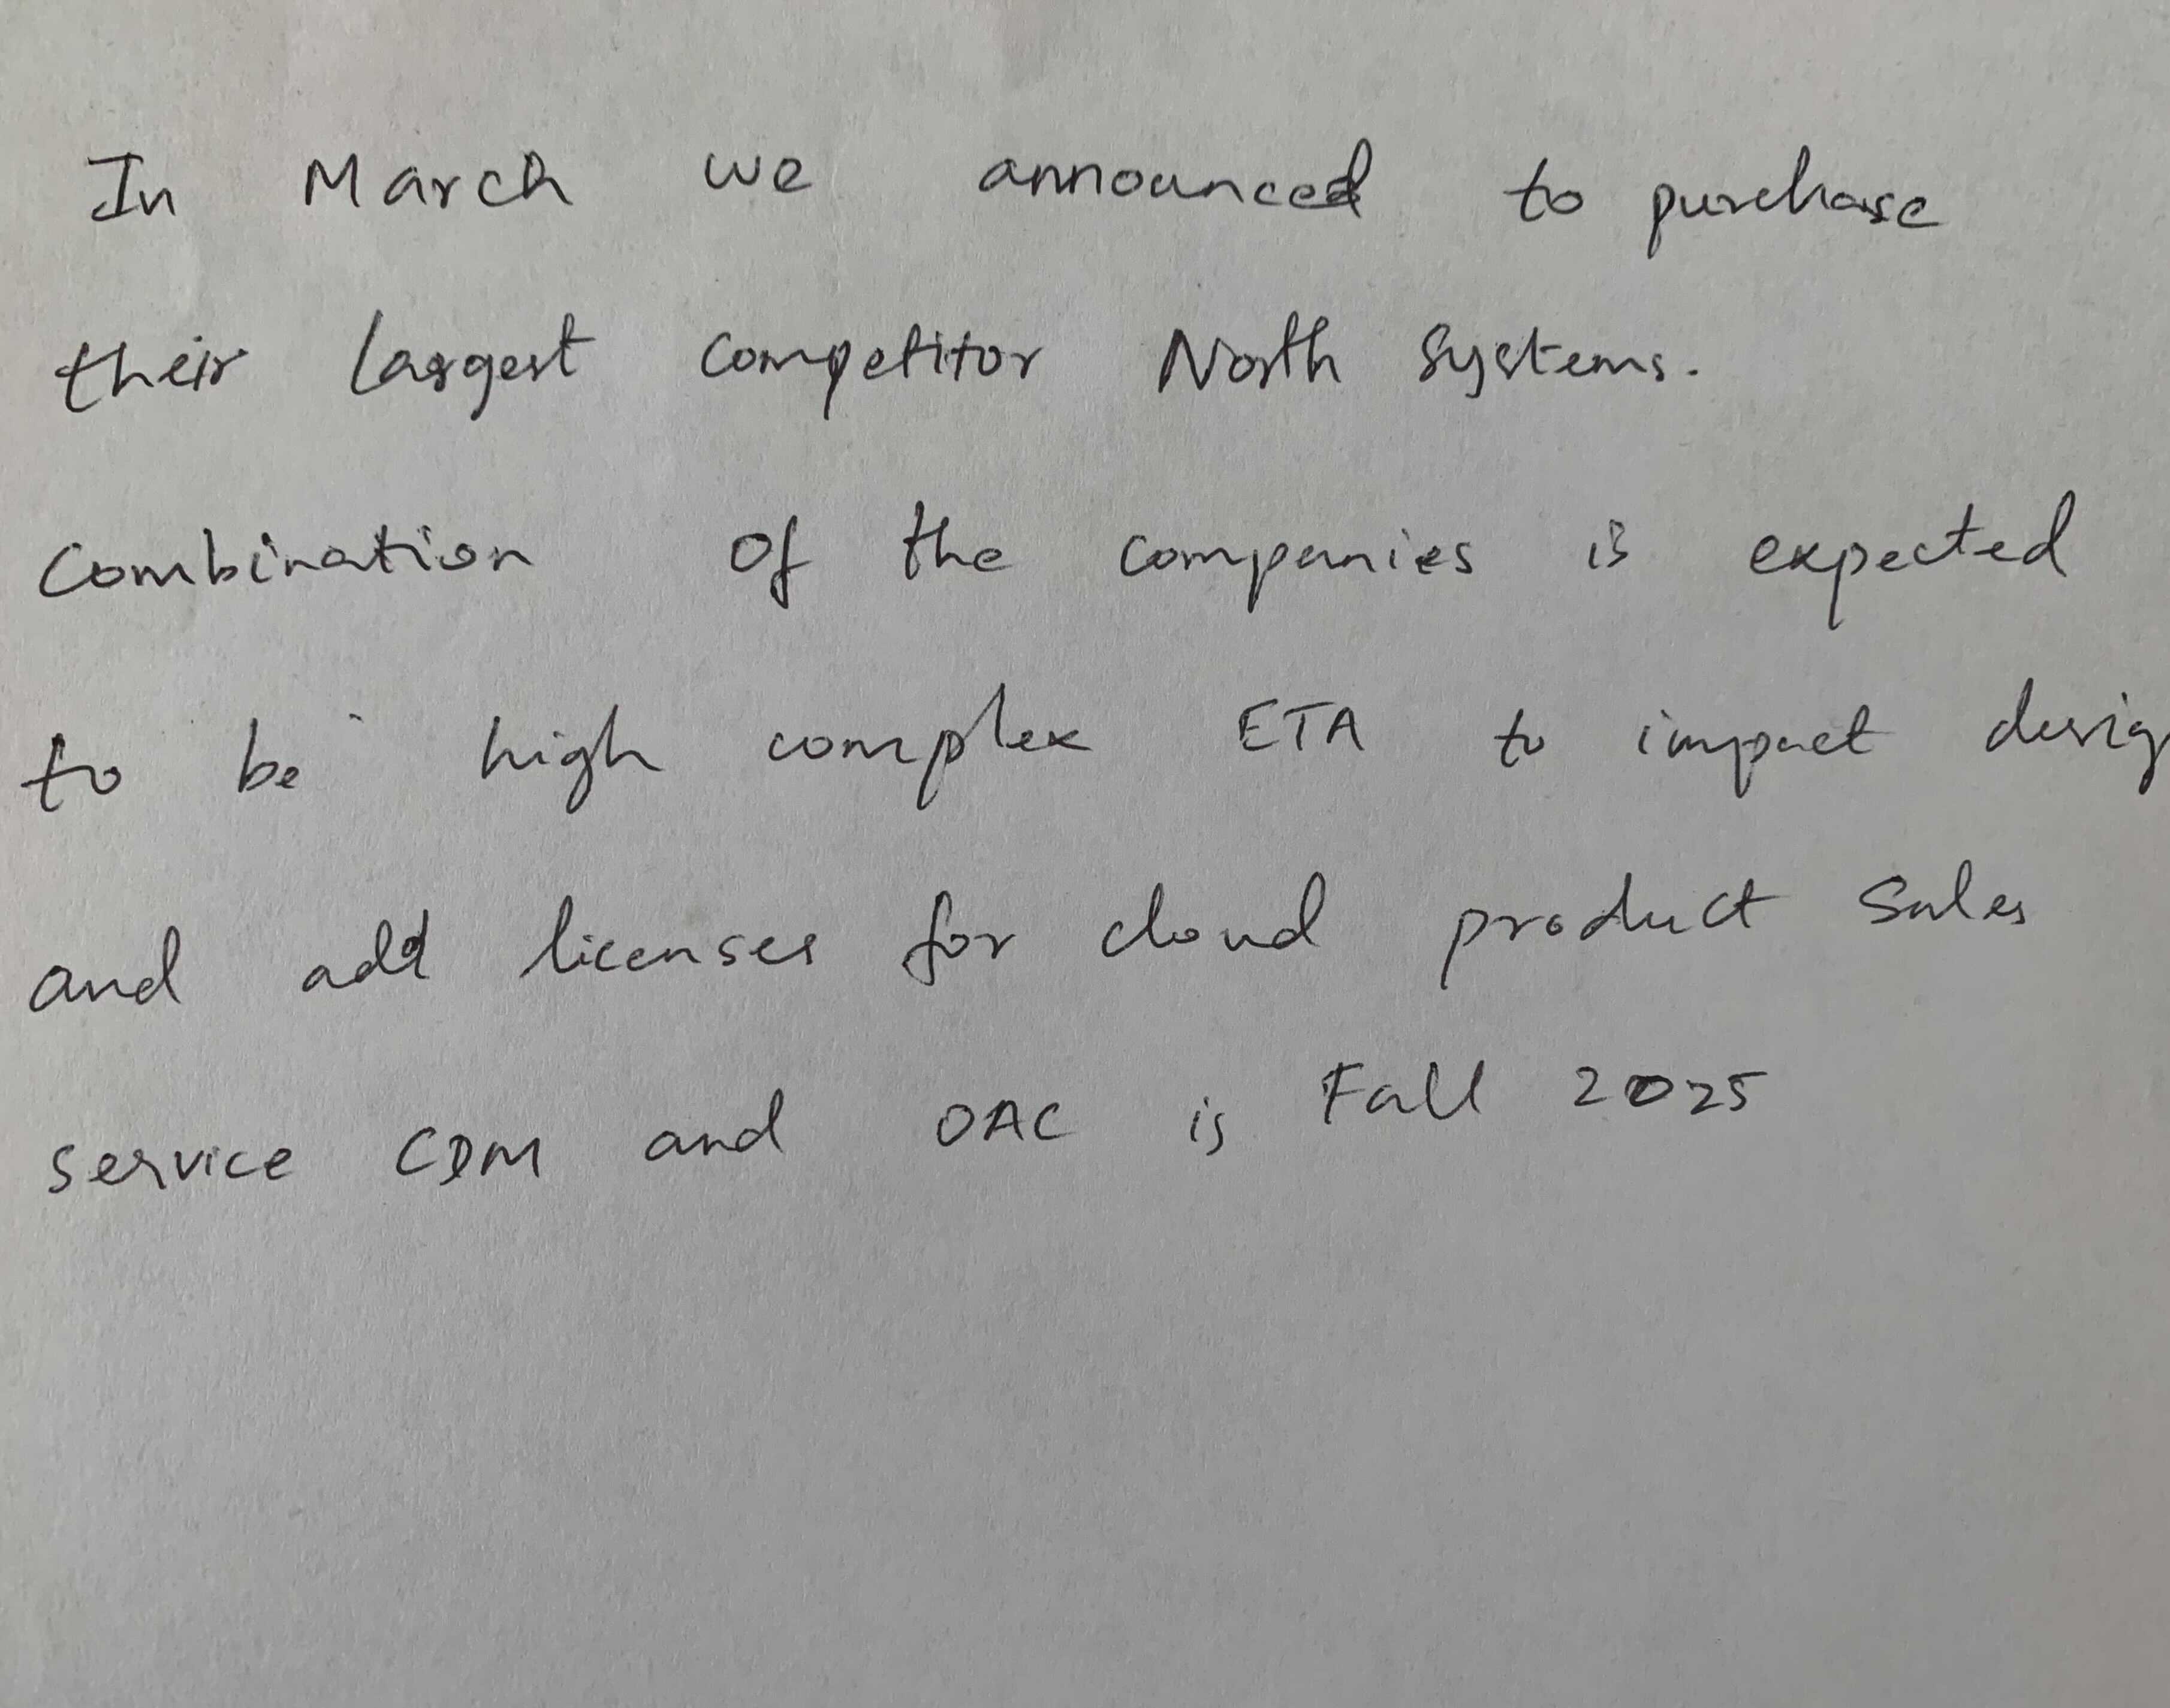 In March we announced to purchase
their largest competitor North Systems.
Combination of the companies is expected
to be high complex ETA to impact desig
and add licenses for cloud product sales
service CDM and OAC is Fall 2025